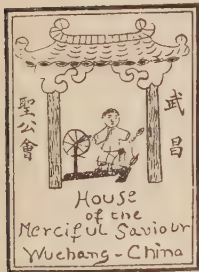 聖公會
武昌
House
of the
Merciful Saviour
Wuchang - China